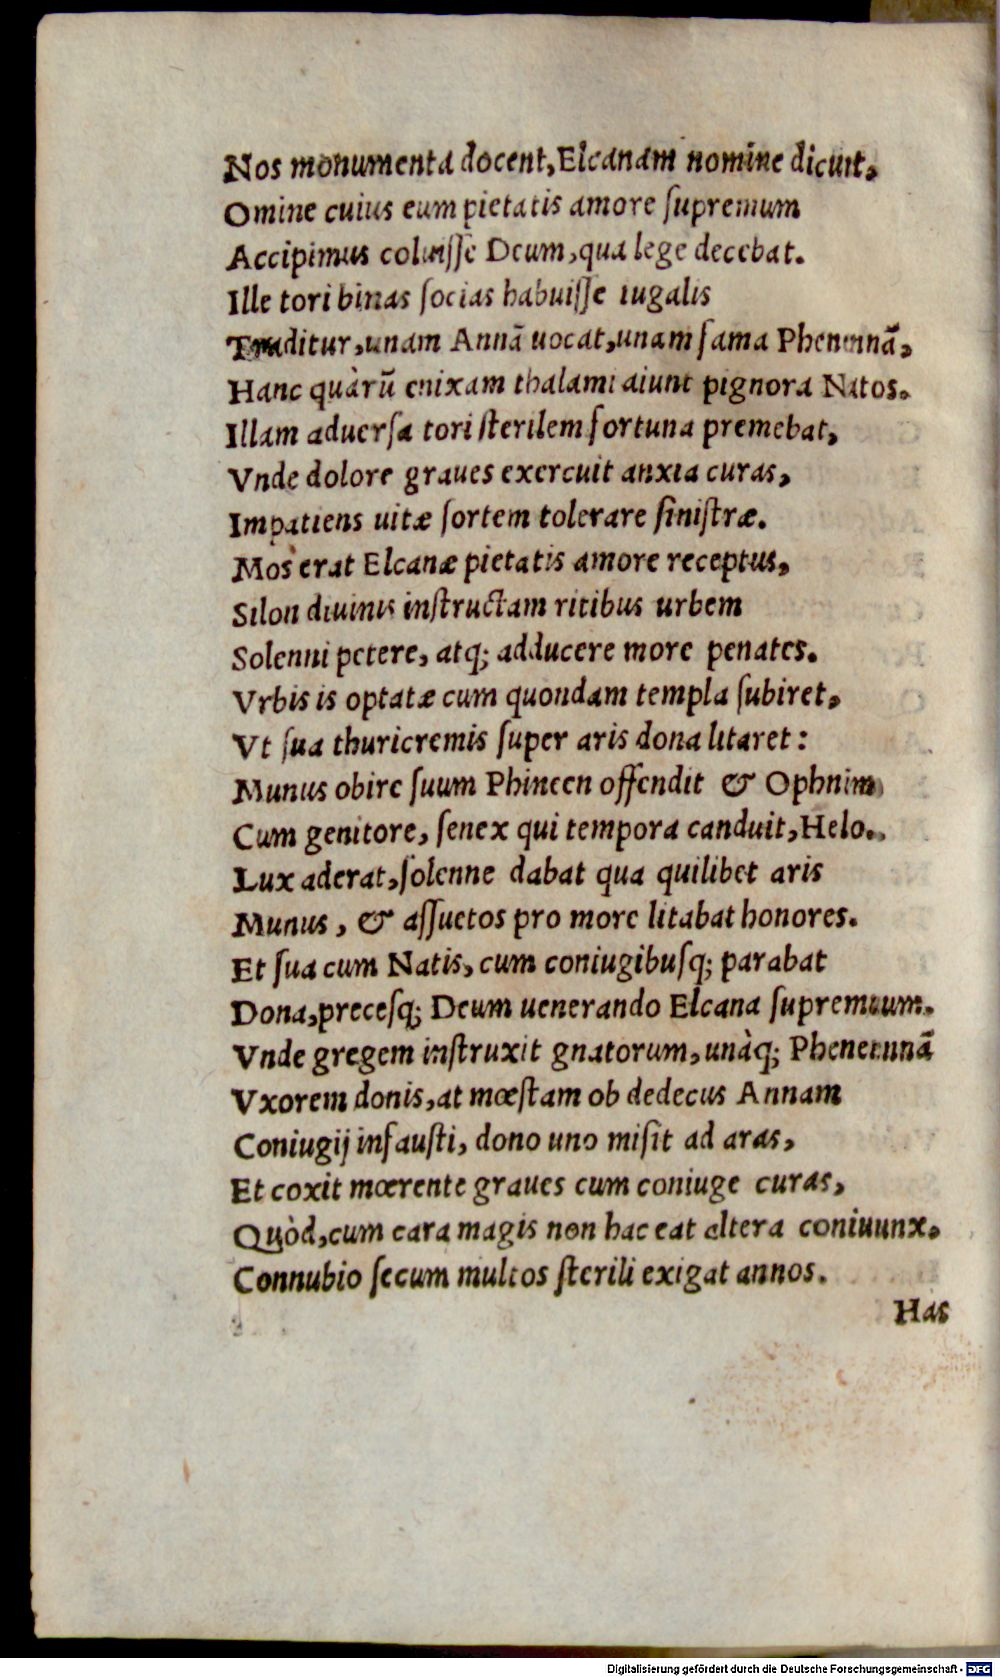 Nos monumenta docent, Elcanam nomine dicunt,
Omine cuius eum pietatis amore ſupremum
Accipimus coluiſſe Deum, qua lege decebat.
Ille tori binas ſocias habuiſſe iugalis
Traditur, unam Annā uocat, unam fama Phenennā,
Hanc quàrū enixam thalami aiunt pignora Natos.
Illam aduerſa tori ſterilem fortuna premebat,
Vnde dolore graues exercuit anxia curas,
Impatiens uitæ ſortem tolerare ſiniſtræ.
Mos erat Elcanæ pietatis amore receptus,
Silon diuinis inſtructam ritibus urbem
Solenni petere, atq; adducere more penates.
Vrbis is optatæ cum quondam templa ſubiret,
Vt ſua thuricremis ſuper aris dona litaret:
Munus obire ſuum Phineen offendit & Ophnim
Cum genitore, ſenex qui tempora canduit, Helo.
Lux aderat, ſolenne dabat qua quilibet aris
Munus, & aſſuetos pro more litabat honores.
Et ſua cum Natis, cum coniugibuſq; parabat
Dona, preceſq; Deum uenerando Elcana ſupremum.
Vnde gregem inſtruxit gnatorum, unàq; Phenennā
Vxorem donis, at mœſtam ob dedecus Annam
Coniugij infauſti, dono uno miſit ad aras,
Et coxit mœrente graues cum coniuge curas,
Quòd, cum cara magis non hac eat altera coniuunx.
Connubio ſecum multos ſterili exigat annos.
Has
Digitalisierung gefördert durch die Deutsche Forschungsgemeinschaft - DFG